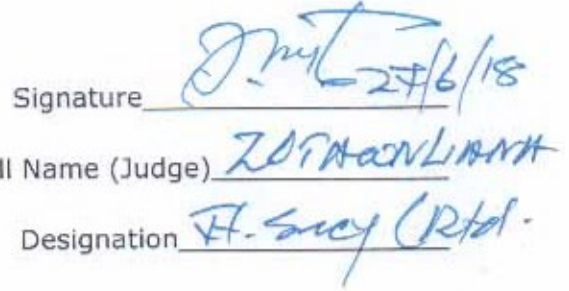 Signature 27/6/18
ll Name (Judge) ZOTHANLIANA
Designation (Rtd.